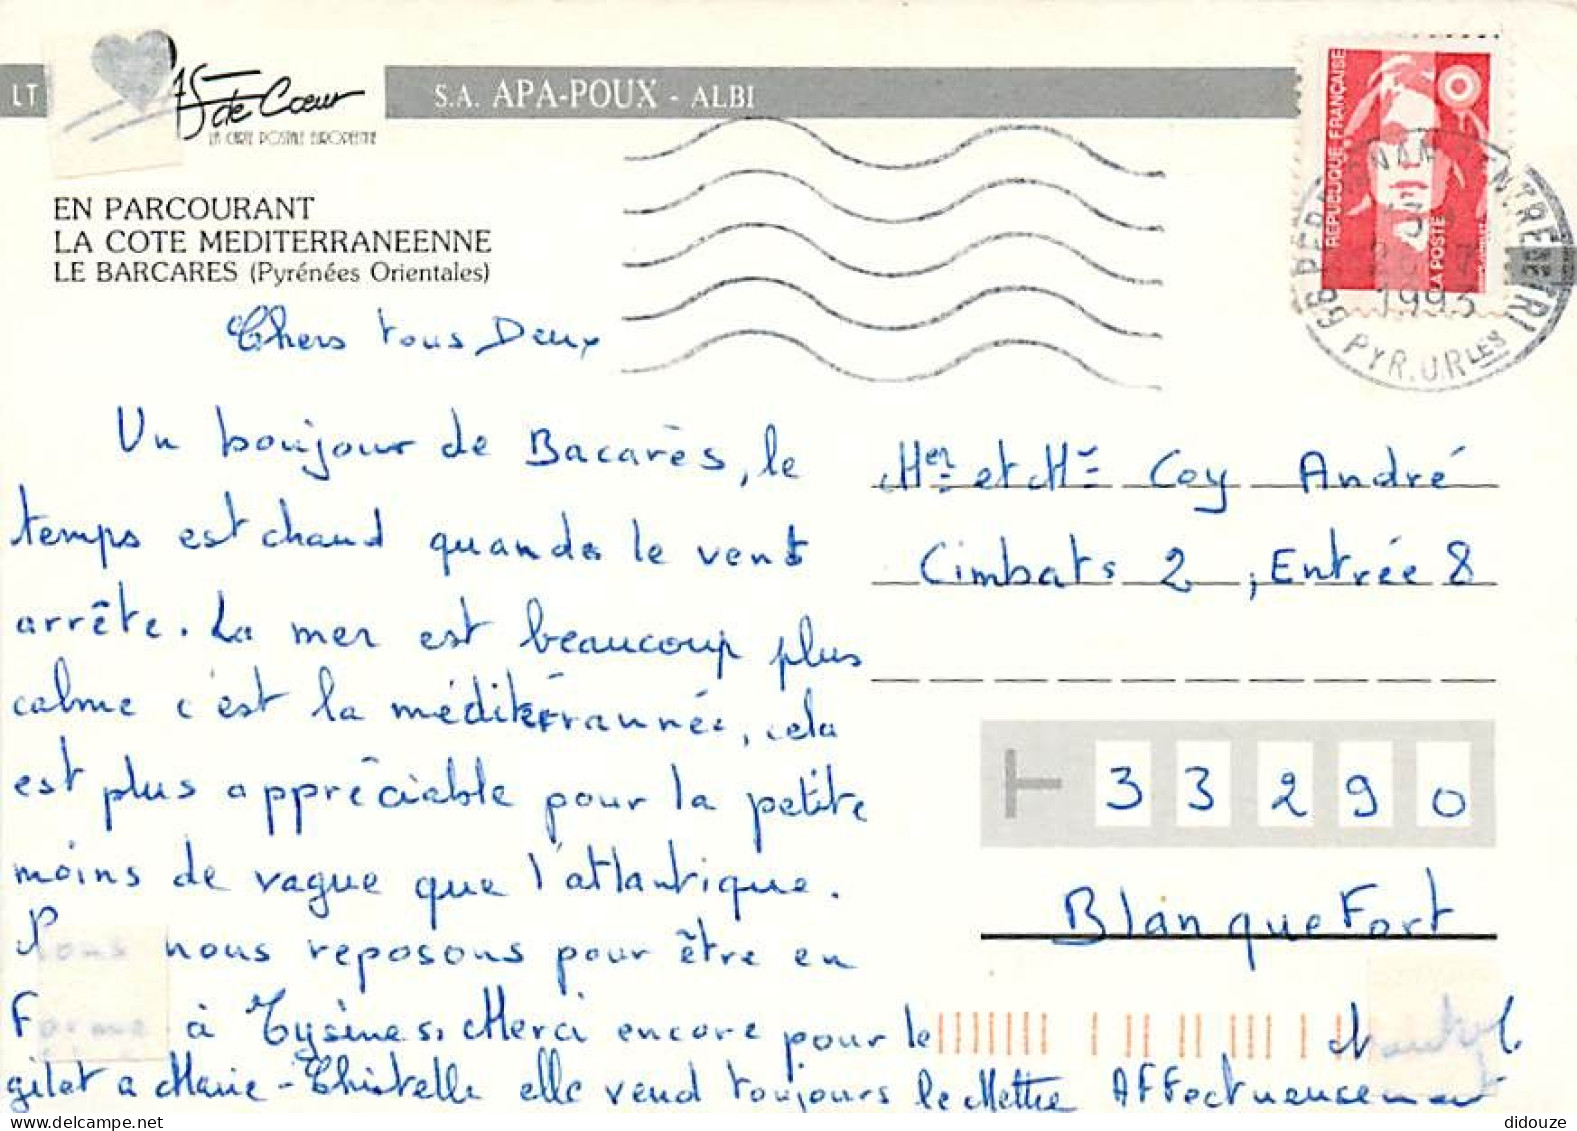 LT
AS de Cœur
LA CARTE POSTALE EUROPEENNE
S.A. APA-POUX - ALBI
REPUBLIQUE FRANÇAISE
LA POSTE
66 PERPIGNAN
1993
PYR. ORLES
EN PARCOURANT
LA COTE MEDITERRANEENNE
LE BARCARES (Pyrénées Orientales)
Chers tous Deux
Un bonjour de Bacarès, le
temps est chaud quand le vent
arrête. La mer est beaucoup plus
calme c'est la méditérrannée, cela
est plus appréciable pour la petite
moins de vague que l'atlantique.
Nous nous reposons pour être en
Forme à Eysines. Merci encore pour le
gilet a Marie-Christelle elle veud toujours le Mettre Affectueusement
Mer et Me Coy André
Cimbats 2, Entrée 8
33290
BlanqueFort
didouze